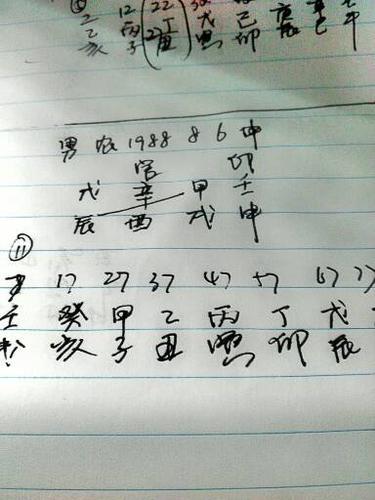 12 22
乙 丙 丁 戊 己 庚
亥 子 丑 寅 卯 辰 巳
男 农 1988 8 6 申
官 卯
戊 辛 甲 壬
辰 酉 戌 申
⑪
17 27 37 47 57 67 77
壬 癸 甲 乙 丙 丁 戊
亥 子 丑 寅 卯 辰